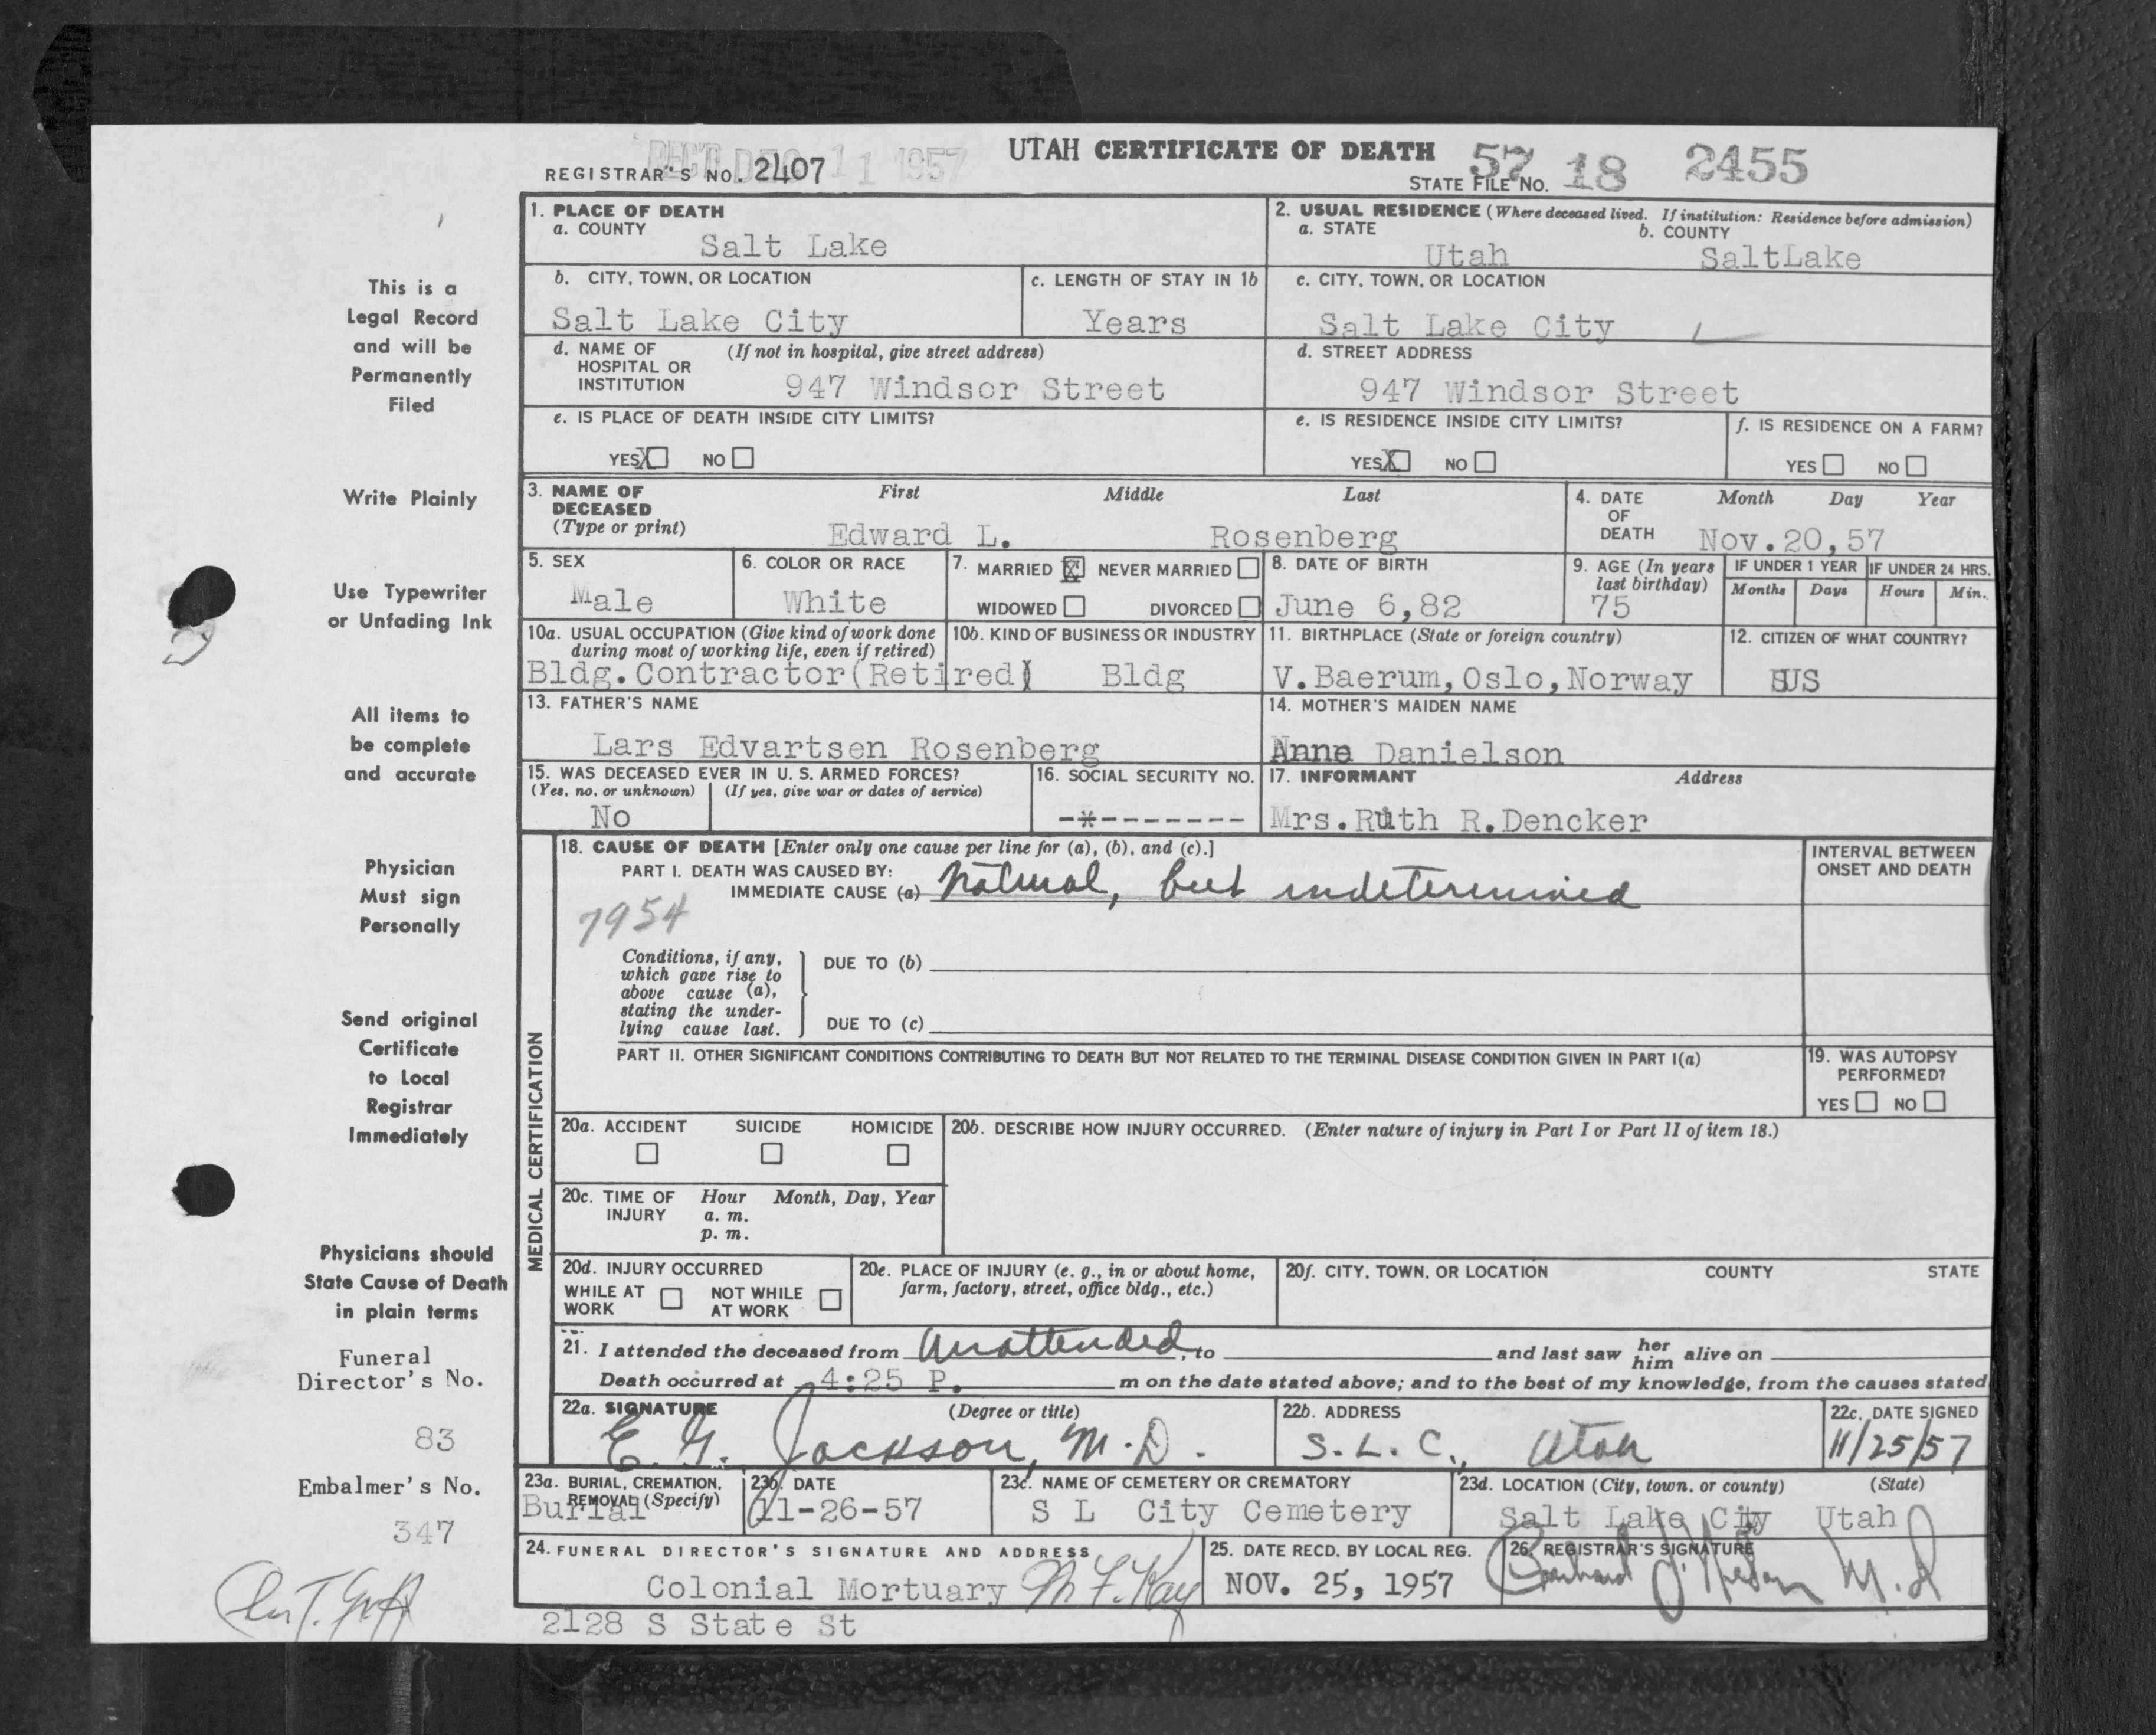 REC'D DEC 11 1957
UTAH CERTIFICATE OF DEATH
REGISTRAR'S NO. 2407
STATE FILE NO. 57 18 2455
1. PLACE OF DEATH
a. COUNTY
Salt Lake
2. USUAL RESIDENCE (Where deceased lived. If institution: Residence before admission)
a. STATE b. COUNTY
Utah SaltLake
b. CITY, TOWN, OR LOCATION
Salt Lake City
c. LENGTH OF STAY IN 1b
Years
c. CITY, TOWN, OR LOCATION
Salt Lake City
d. NAME OF (If not in hospital, give street address)
HOSPITAL OR
INSTITUTION 947 Windsor Street
d. STREET ADDRESS
947 Windsor Street
e. IS PLACE OF DEATH INSIDE CITY LIMITS?
YES X NO
e. IS RESIDENCE INSIDE CITY LIMITS?
YES X NO
f. IS RESIDENCE ON A FARM?
YES NO
3. NAME OF First Middle Last
DECEASED
(Type or print) Edward L. Rosenberg
4. DATE Month Day Year
OF
DEATH Nov.20,57
5. SEX
Male
6. COLOR OR RACE
White
7. MARRIED X NEVER MARRIED
WIDOWED DIVORCED
8. DATE OF BIRTH
June 6,82
9. AGE (In years
last birthday)
75
IF UNDER 1 YEAR
Months Days
IF UNDER 24 HRS.
Hours Min.
10a. USUAL OCCUPATION (Give kind of work done
during most of working life, even if retired)
Bldg.Contractor(Retired)
10b. KIND OF BUSINESS OR INDUSTRY
Bldg
11. BIRTHPLACE (State or foreign country)
V.Baerum,Oslo,Norway
12. CITIZEN OF WHAT COUNTRY?
US
13. FATHER'S NAME
Lars Edvartsen Rosenberg
14. MOTHER'S MAIDEN NAME
Anne Danielson
15. WAS DECEASED EVER IN U. S. ARMED FORCES?
(Yes, no, or unknown) (If yes, give war or dates of service)
No
16. SOCIAL SECURITY NO.
-*--------
17. INFORMANT Address
Mrs.Ruth R.Dencker
MEDICAL CERTIFICATION
18. CAUSE OF DEATH [Enter only one cause per line for (a), (b), and (c).]
PART I. DEATH WAS CAUSED BY:
IMMEDIATE CAUSE (a) Natural, but indetermined
7954
INTERVAL BETWEEN
ONSET AND DEATH
Conditions, if any,
which gave rise to
above cause (a),
stating the under-
lying cause last.
DUE TO (b)
DUE TO (c)
PART II. OTHER SIGNIFICANT CONDITIONS CONTRIBUTING TO DEATH BUT NOT RELATED TO THE TERMINAL DISEASE CONDITION GIVEN IN PART I(a)
19. WAS AUTOPSY
PERFORMED?
YES NO
20a. ACCIDENT SUICIDE HOMICIDE
20b. DESCRIBE HOW INJURY OCCURRED. (Enter nature of injury in Part I or Part II of item 18.)
20c. TIME OF Hour Month, Day, Year
INJURY a. m.
p. m.
20d. INJURY OCCURRED
WHILE AT NOT WHILE
WORK AT WORK
20e. PLACE OF INJURY (e. g., in or about home,
farm, factory, street, office bldg., etc.)
20f. CITY, TOWN, OR LOCATION COUNTY STATE
21. I attended the deceased from Unattended, to and last saw her him alive on
Death occurred at 4:25 P. m on the date stated above; and to the best of my knowledge, from the causes stated
22a. SIGNATURE (Degree or title)
E. G. Jackson, M.D.
22b. ADDRESS
S.L.C., Utah
22c. DATE SIGNED
11/25/57
23a. BURIAL, CREMATION,
REMOVAL (Specify)
Burial
23b. DATE
11-26-57
23c. NAME OF CEMETERY OR CREMATORY
S L City Cemetery
23d. LOCATION (City, town, or county) (State)
Salt Lake City Utah
24. FUNERAL DIRECTOR'S SIGNATURE AND ADDRESS
Colonial Mortuary M F. Kay
2128 S State St
25. DATE RECD. BY LOCAL REG.
NOV. 25, 1957
26. REGISTRAR'S SIGNATURE
M.D
This is a
Legal Record
and will be
Permanently
Filed
Write Plainly
Use Typewriter
or Unfading Ink
All items to
be complete
and accurate
Physician
Must sign
Personally
Send original
Certificate
to Local
Registrar
Immediately
Physicians should
State Cause of Death
in plain terms
Funeral
Director's No.
83
Embalmer's No.
347